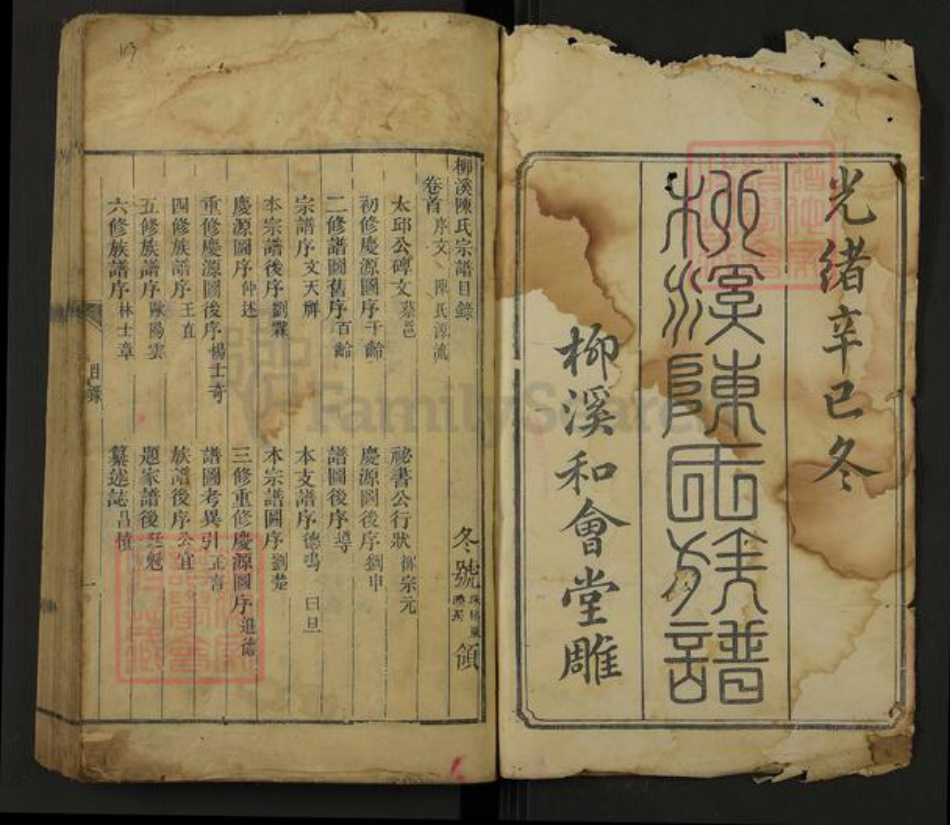 光緒辛巳冬
柳溪陳氏族譜
柳溪和會堂雕
柳溪陳氏宗譜目錄
冬號
領
卷首 序文 陳氏源流
太邱公碑文 蔡邕
祕書公行狀 柳宗元
初修慶源圖序 千齡
慶源圖後序 劉申
二修譜圖舊序 百齡
譜圖後序 導
宗譜序 文天祥
本支譜序 德鳴 曰旦
本宗譜後序 劉霖
本宗譜圖序 劉楚
慶源圖序 仲述
三修重修慶源圖序 進德
重修慶源圖後序 楊士奇
譜圖考異引 正言
四修族譜序 王直
族譜後序 公宜
五修族譜序 歐陽雲
題家譜後
六修族譜序 林士章
纂述誌 昌積
目錄
一
FamilySearch